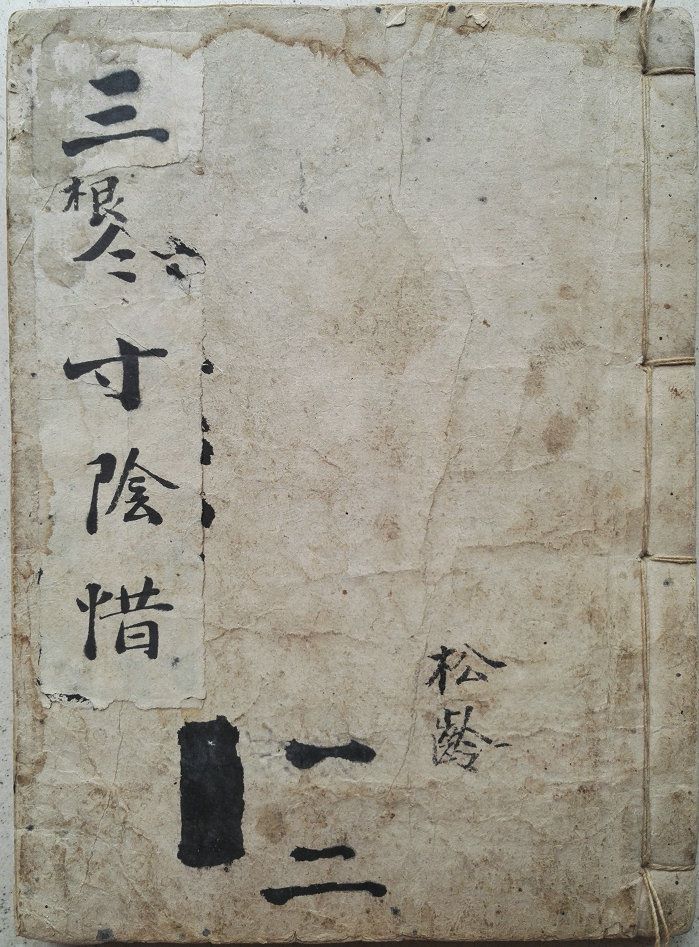 松齡
一二
三根寸陰惜